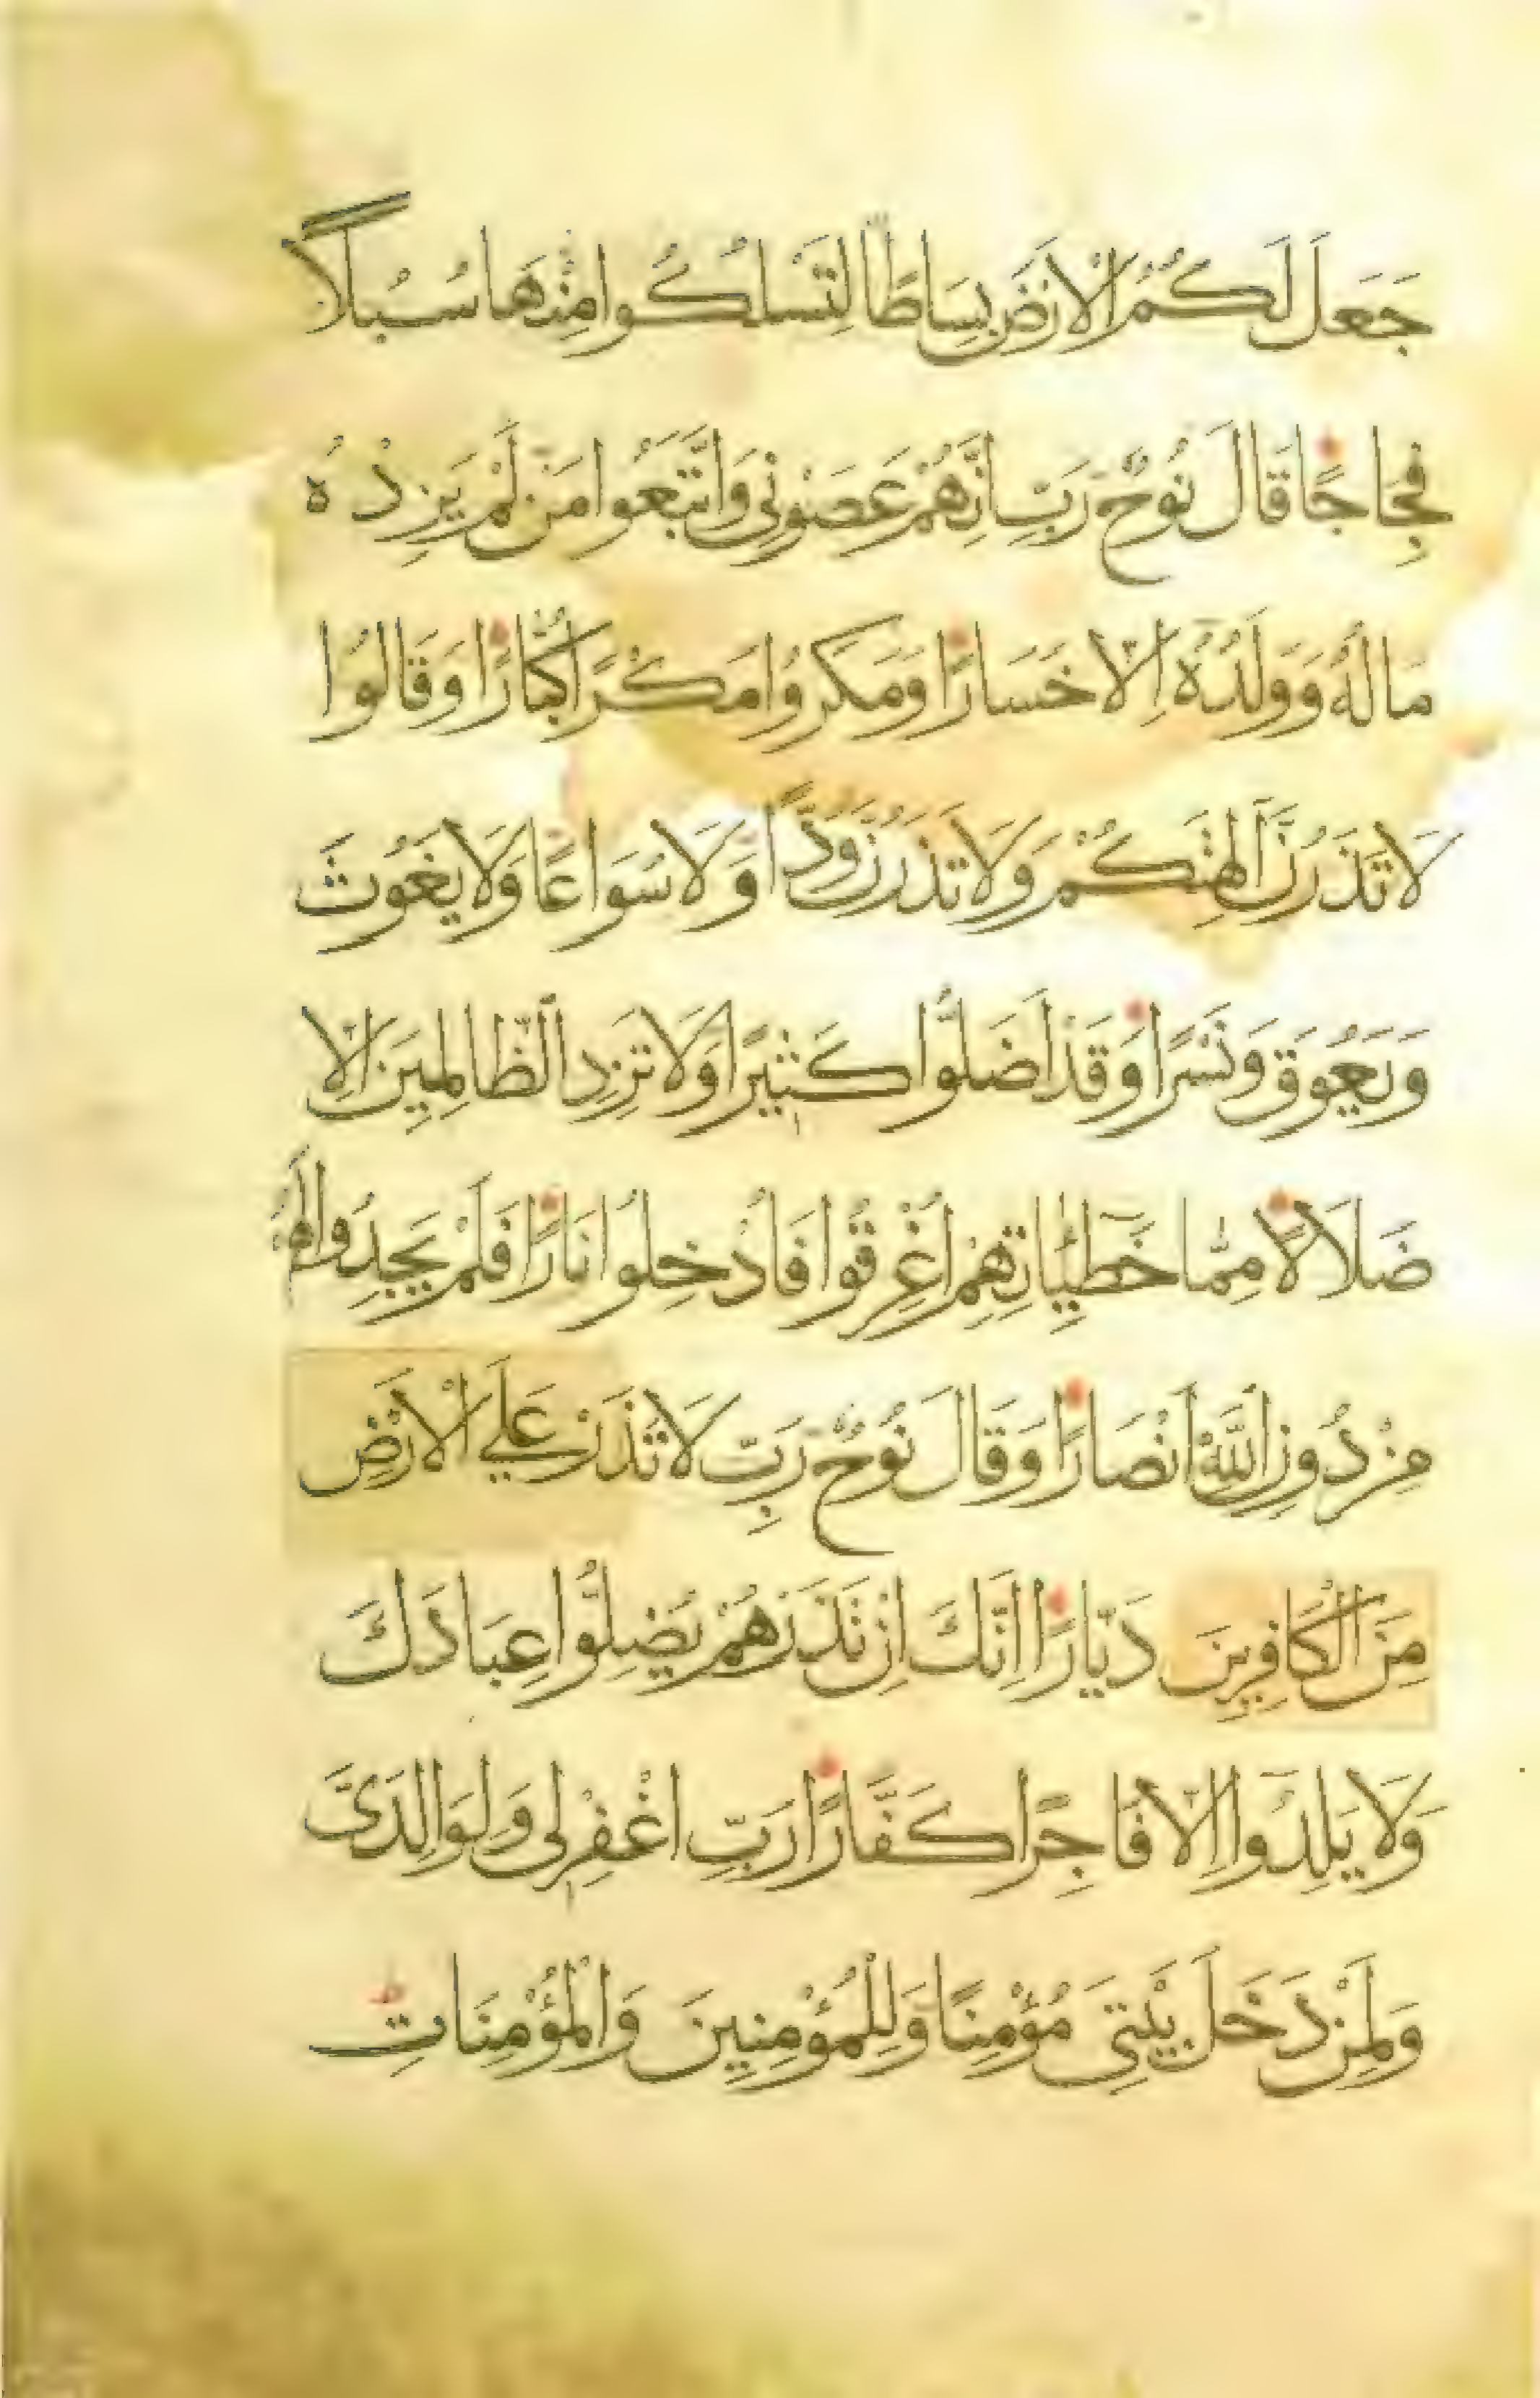 جَعَلَ لَكُمُ الْاَرْضَ بِسَاطًا لِتَسْلُكُوا مِنْهَا سُبُلًا
فِجَاجًا قَالَ نُوحٌ رَبِّ اِنَّهُمْ عَصَوْنِى وَاتَّبَعُوا مَنْ لَمْ يَزِدْهُ
مَالُهُ وَوَلَدُهُ اِلَّا خَسَارًا وَمَكَرُوا مَكْرًا كُبَّارًا وَقَالُوا
لَا تَذَرُنَّ آلِهَتَكُمْ وَلَا تَذَرُنَّ وَدًّا وَلَا سُوَاعًا وَلَا يَغُوثَ
وَيَعُوقَ وَنَسْرًا وَقَدْ اَضَلُّوا كَثِيرًا وَلَا تَزِدِ الظَّالِمِينَ اِلَّا
ضَلَالًا مِمَّا خَطِيئَاتِهِمْ اُغْرِقُوا فَاُدْخِلُوا نَارًا فَلَمْ يَجِدُوا لَهُمْ
مِنْ دُونِ اللّٰهِ اَنْصَارًا وَقَالَ نُوحٌ رَبِّ لَا تَذَرْ عَلَى الْاَرْضِ
مِنَ الْكَافِرِينَ دَيَّارًا اِنَّكَ اِنْ تَذَرْهُمْ يُضِلُّوا عِبَادَكَ
وَلَا يَلِدُوا اِلَّا فَاجِرًا كَفَّارًا رَبِّ اغْفِرْ لِى وَلِوَالِدَىَّ
وَلِمَنْ دَخَلَ بَيْتِىَ مُؤْمِنًا وَلِلْمُؤْمِنِينَ وَالْمُؤْمِنَاتِ ط